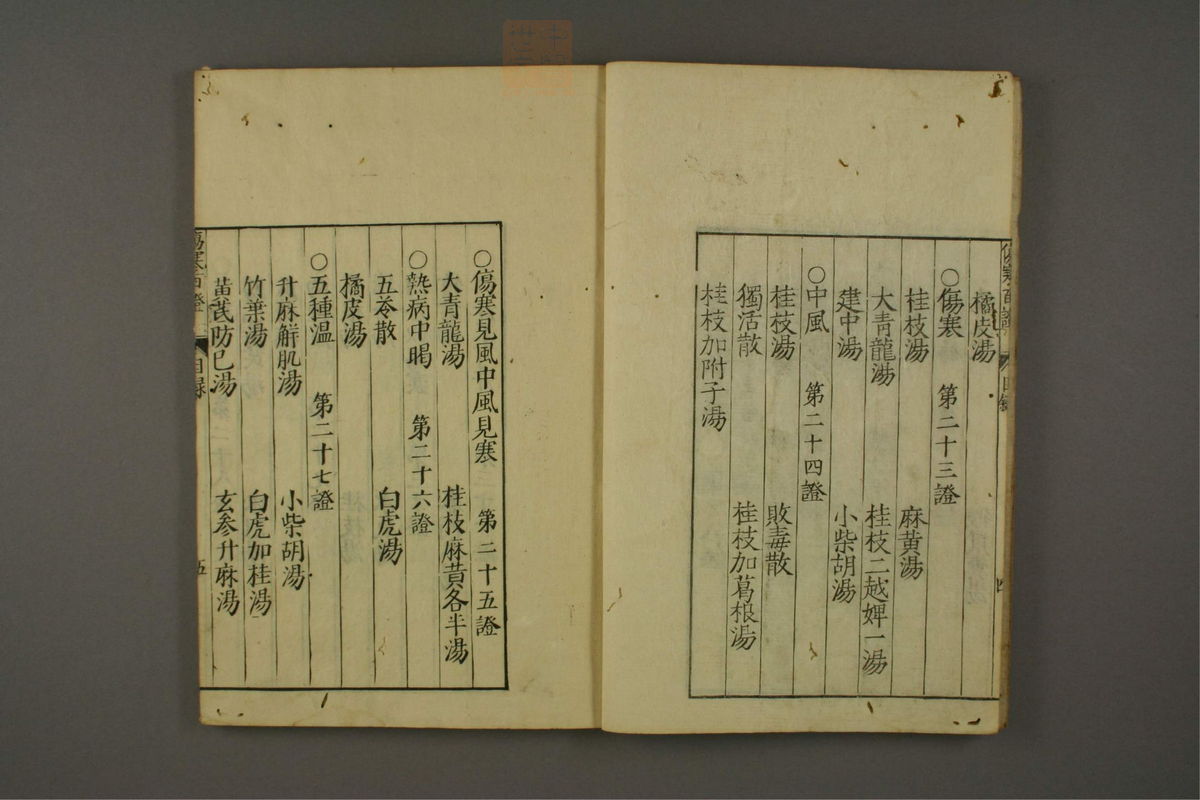 橘皮湯
○傷寒　第二十三證
桂枝湯　麻黄湯
大青龍湯　桂枝二越婢一湯
建中湯　小柴胡湯
○中風　第二十四證
桂枝湯　敗毒散
獨活散　桂枝加葛根湯
桂枝加附子湯
○傷寒見風中風見寒　第二十五證
大青龍湯　桂枝麻黄各半湯
○熱病中暍　第二十六證
五苓散　白虎湯
橘皮湯
○五種温　第二十七證
升麻解肌湯　小柴胡湯
竹葉湯　白虎加桂湯
防巳湯　玄参升麻湯
傷寒百證　目録　五